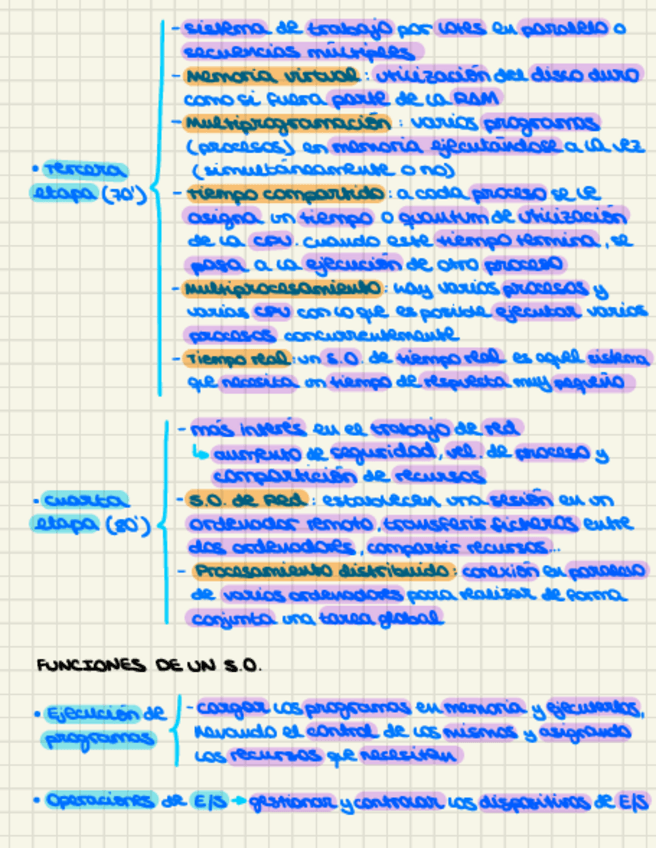 - sistema de trabajo por lotes en paralelo o
secuencias múltiples
- Memoria virtual: utilización del disco duro
como si fuera parte de la RAM
- Multiprogramación: varios programas
(procesos) en memoria ejecutándose a la vez
(simultáneamente o no)
• Tercera
etapa (70')
- Tiempo compartido: a cada proceso se le
asigna un tiempo o quantum de utilización
de la CPU. Cuando este tiempo termina, se
pasa a la ejecución de otro proceso
- Multiprocesamiento: hay varios procesos y
varias CPU con lo que es posible ejecutar varios
procesos concurrentemente
- Tiempo real: un S.O. de tiempo real es aquel sistema
que necesita un tiempo de respuesta muy pequeño
- más interés en el trabajo de red
↳ aumento de seguridad, vel. de proceso y
compartición de recursos
• cuarta
etapa (80')
- S.O. de Red: establecen una sesión en un
ordenador remoto, transferir ficheros entre
dos ordenadores, compartir recursos...
- Procesamiento distribuido: conexión en paralelo
de varios ordenadores para realizar de forma
conjunta una tarea global
FUNCIONES DE UN S.O.
• Ejecución de
programas
- cargar los programas en memoria y ejecutarlos,
llevando el control de los mismos y asignando
los recursos que necesitan
• Operaciones de E/S → gestionar y controlar los dispositivos de E/S